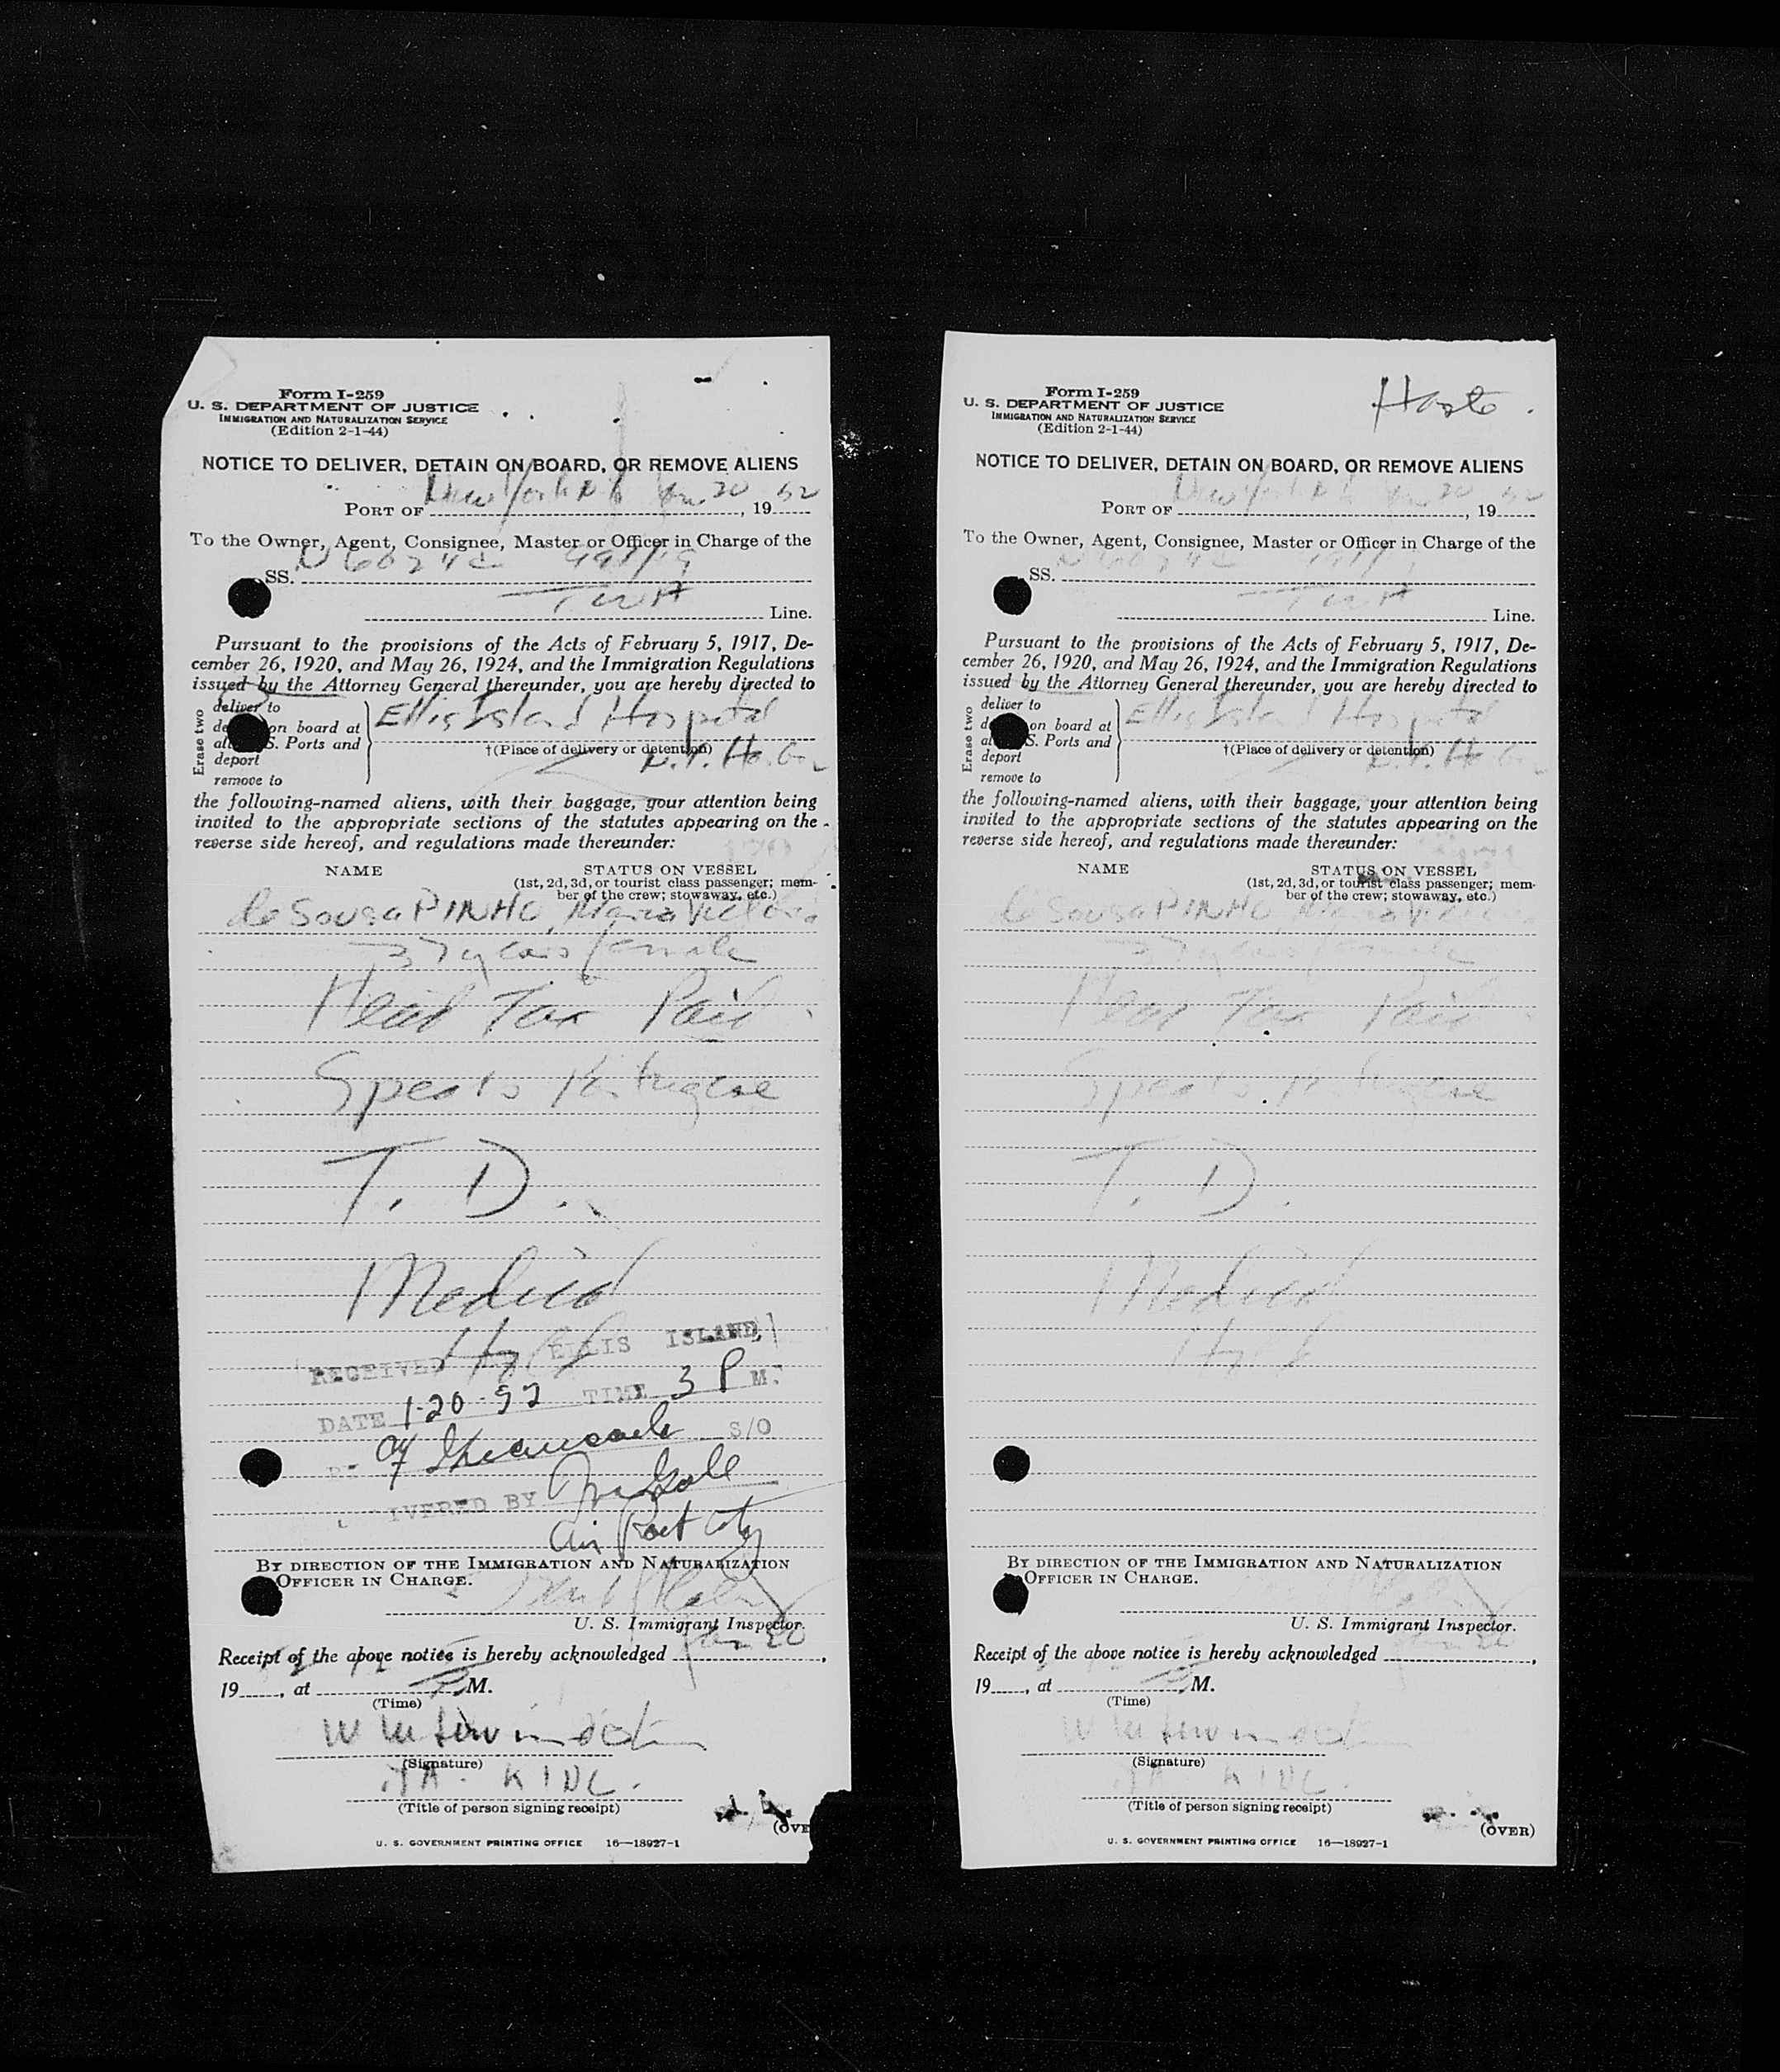 Form I-259
U. S. DEPARTMENT OF JUSTICE
IMMIGRATION AND NATURALIZATION SERVICE
(Edition 2-1-44)
NOTICE TO DELIVER, DETAIN ON BOARD, OR REMOVE ALIENS
PORT OF New York N Y Jan 20, 19 52
To the Owner, Agent, Consignee, Master or Officer in Charge of the
SS. N 6024C
TWA Line.
Pursuant to the provisions of the Acts of February 5, 1917, De-
cember 26, 1920, and May 26, 1924, and the Immigration Regulations
issued by the Attorney General thereunder, you are hereby directed to
Erase two
deliver to
on board at
S. Ports and
deport
remove to
Ellis Island Hospital
†(Place of delivery or detention)
N.Y. Ha.
the following-named aliens, with their baggage, your attention being
invited to the appropriate sections of the statutes appearing on the
reverse side hereof, and regulations made thereunder:
NAME STATUS ON VESSEL
(1st, 2d, 3d, or tourist class passenger; mem-
ber of the crew; stowaway, etc.)
de Sousa PINHO, Maria Victoria
37 years female
Head Tax Paid
Speaks Portuguese
T. D.
Medical
RECEIVED ELLIS ISLAND
DATE 1-20-52 TIME 3 P M.
S/O
IVERED BY
Air Port City
BY DIRECTION OF THE IMMIGRATION AND NATURALIZATION
OFFICER IN CHARGE.
U. S. Immigrant Inspector.
Receipt of the above notice is hereby acknowledged Jan 20,
19, at M.
(Time)
(Signature)
(Title of person signing receipt)
(OVE
U. S. GOVERNMENT PRINTING OFFICE 16—18927-1
Form I-259
U. S. DEPARTMENT OF JUSTICE
IMMIGRATION AND NATURALIZATION SERVICE
(Edition 2-1-44)
NOTICE TO DELIVER, DETAIN ON BOARD, OR REMOVE ALIENS
PORT OF New York N Y Jan 20, 19 52
To the Owner, Agent, Consignee, Master or Officer in Charge of the
SS.
TWA Line.
Pursuant to the provisions of the Acts of February 5, 1917, De-
cember 26, 1920, and May 26, 1924, and the Immigration Regulations
issued by the Attorney General thereunder, you are hereby directed to
Erase two
deliver to
on board at
S. Ports and
deport
remove to
Ellis Island Hospital
†(Place of delivery or detention)
N.Y. Ha.
the following-named aliens, with their baggage, your attention being
invited to the appropriate sections of the statutes appearing on the
reverse side hereof, and regulations made thereunder:
NAME STATUS ON VESSEL
(1st, 2d, 3d, or tourist class passenger; mem-
ber of the crew; stowaway, etc.)
de Sousa PINHO, Maria Victoria
37 years female
Head Tax Paid
Speaks Portuguese
T. D.
Medical
BY DIRECTION OF THE IMMIGRATION AND NATURALIZATION
OFFICER IN CHARGE.
U. S. Immigrant Inspector.
Receipt of the above notice is hereby acknowledged,
19, at M.
(Time)
(Signature)
(Title of person signing receipt)
(OVER)
U. S. GOVERNMENT PRINTING OFFICE 16—18927-1